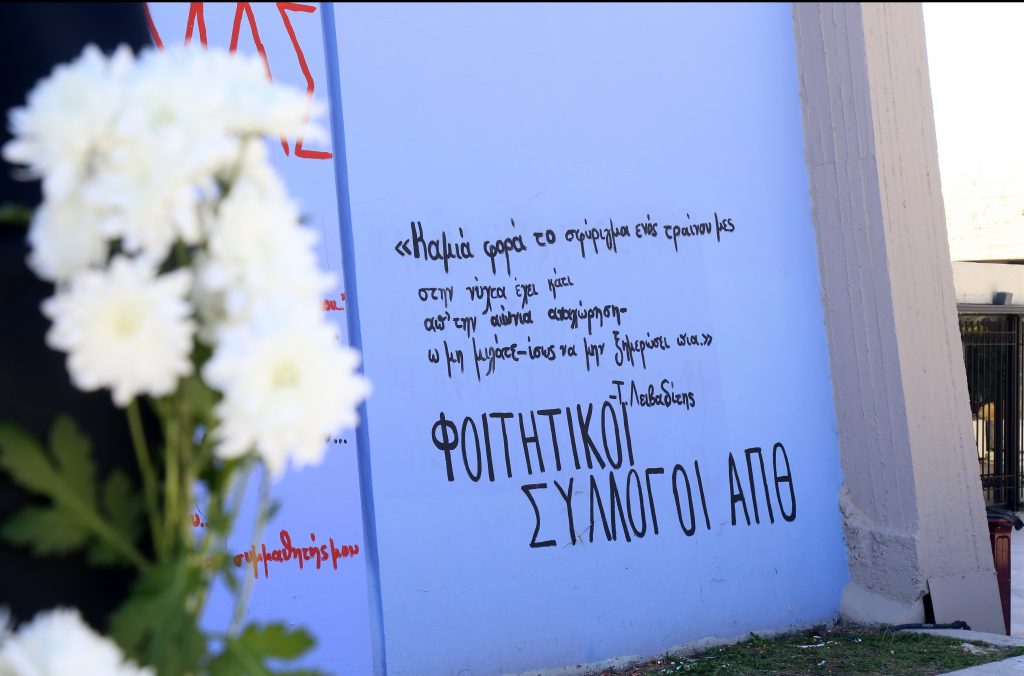 ΜΑΣ
«Καμιά φορά το σφύριγμα ενός τραίνου μες
στην νύχτα έχει κάτι
απ' την αιώνια αποχώρηση-
ω μη μιλάτε-ίσως να μην ξημερώσει πια.»
-Τ. Λειβαδίτης
ΦΟΙΤΗΤΙΚΟΙ
ΣΥΛΛΟΓΟΙ ΑΠΘ
συμμαθητής μου